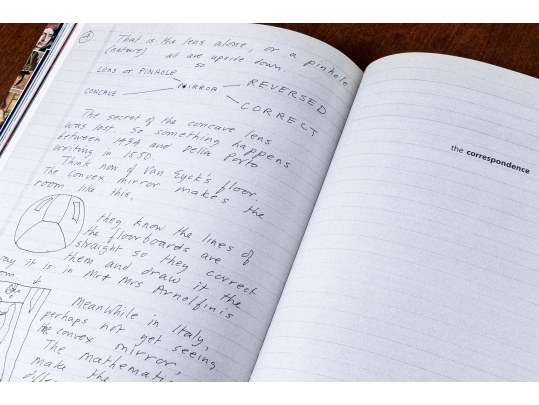 2
That is the lens alone, or a pinhole
(nature) all are upside down.
so
LENS or PINHOLE
MIRROR
REVERSED
CONCAVE
CORRECT
The secret of the concave lens
was lost so something happens
between 1434 and Della Porto
writing in 1550.
Think now of Van Eyck's floor.
The convex mirror makes the
room like this.
they know the lines of
the floorboards are
straight so they correct
them and draw it the
way it is in Mr + Mrs Arnolfinis
room
Meanwhile in Italy,
perhaps not yet seeing
the convex mirror,
The
make the
the correspondence